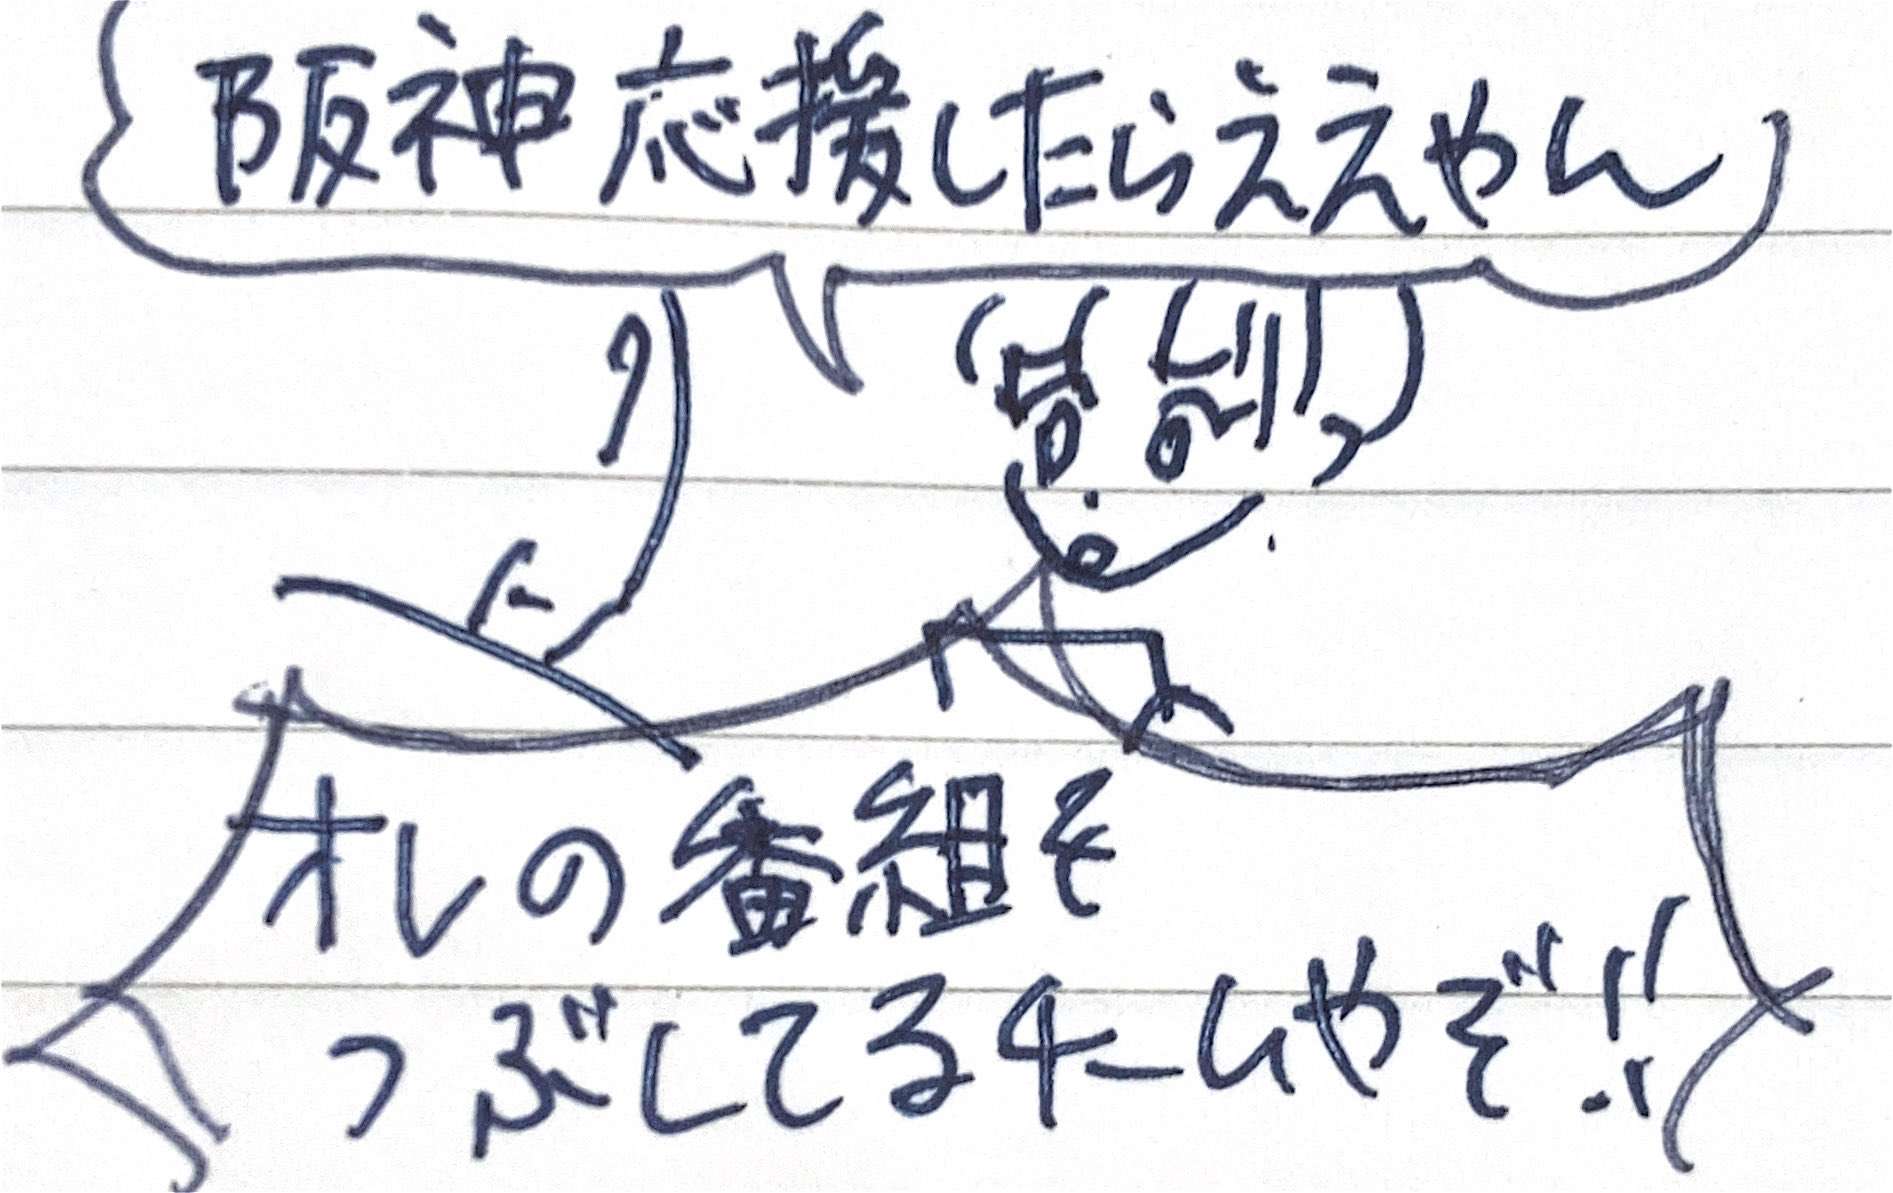 阪神応援したらええやん
オレの番組を
つぶしてるチームやぞ!!